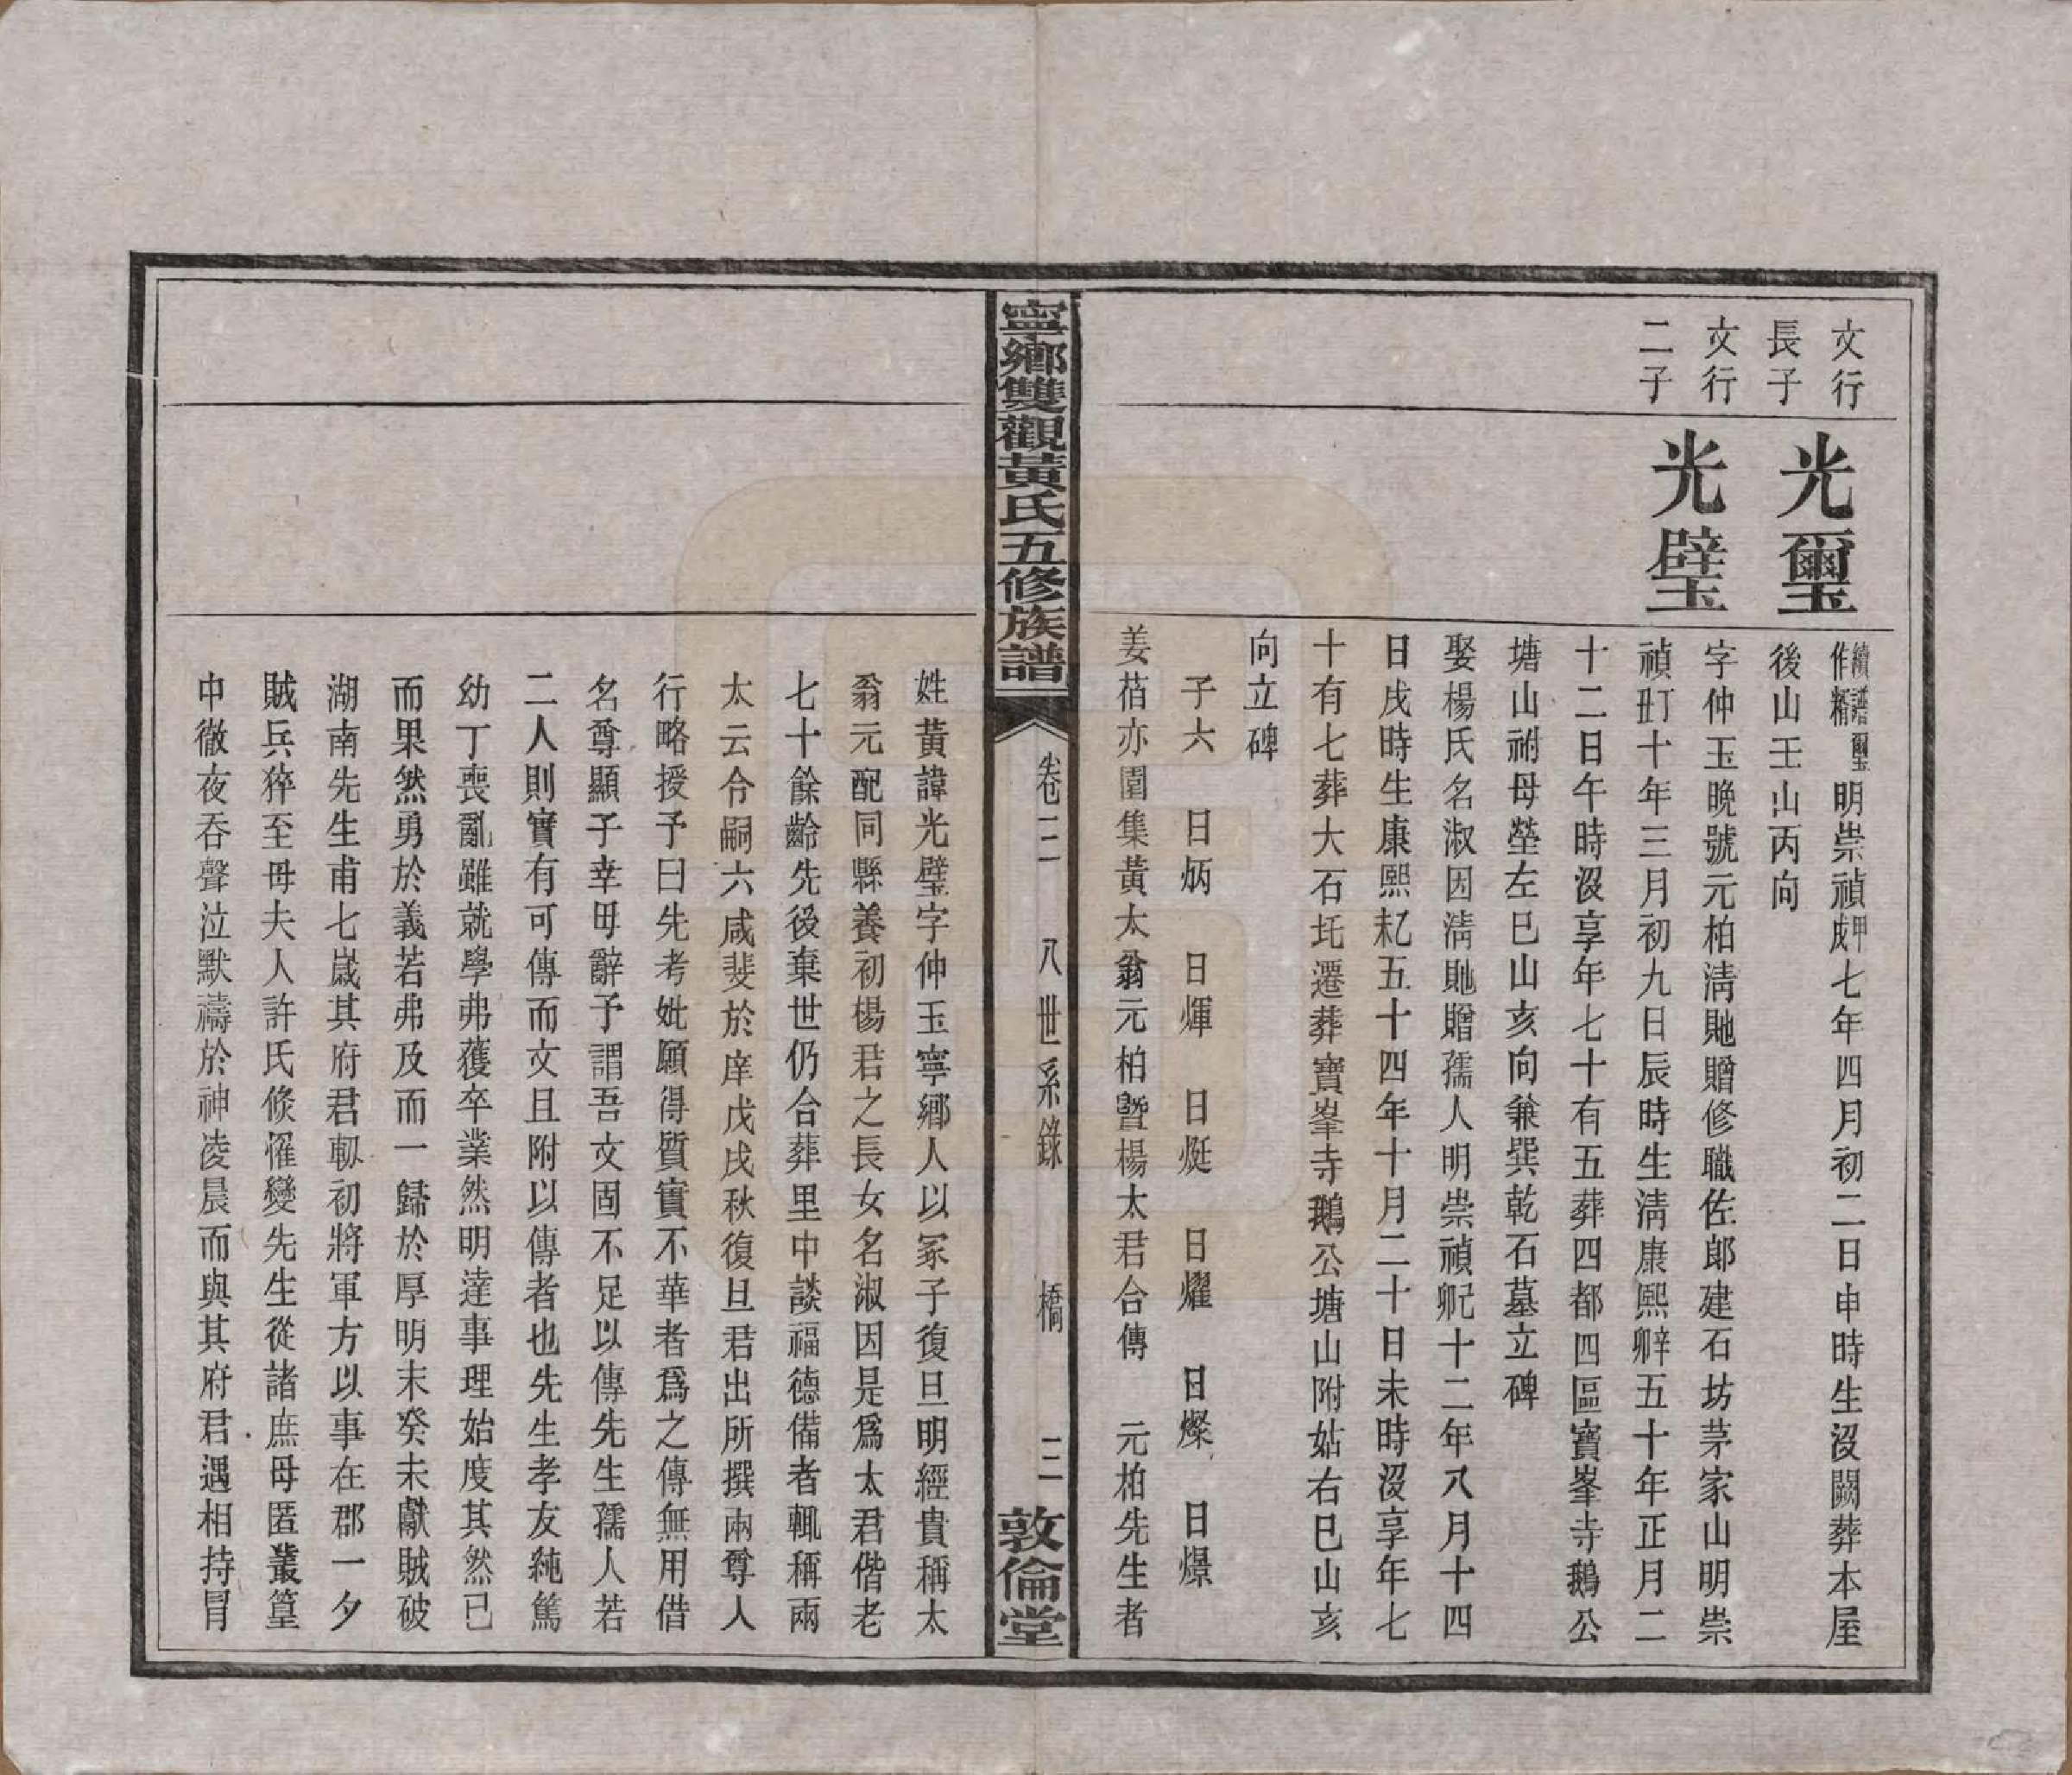 文行
長子
光璽
續譜璽
作精
明崇禎甲戌七年四月初二日申時生沒闕葬本屋
後山壬山丙向
文行
二子
光璧
字仲玉晚號元柏淸貤贈修職佐郎建石坊茅家山明崇
禎丁丑十年三月初九日辰時生淸康熙辛卯五十年正月二
十二日午時沒享年七十有五葬四都四區寶峯寺鵝公
塘山祔母塋左巳山亥向兼巽乾石墓立碑
娶楊氏名淑因淸貤贈孺人明崇禎己卯十二年八月十四
日戌時生康熙乙未五十四年十月二十日未時沒享年七
十有七葬大石圫遷葬寶峯寺鵝公塘山附姑右巳山亥
向立碑
子六　日炳　日煇　日烶　日燿　日燦　日燝
姜萿亦園集黃太翁元柏曁楊太君合傳　元柏先生者
寧鄉雙觀黃氏五修族譜
卷二　八世系錄　橋　三
敦倫堂
姓黃諱光璧字仲玉寧鄉人以冢子復旦明經貴稱太
翁元配同縣養初楊君之長女名淑因是爲太君偕老
七十餘齡先後棄世仍合葬里中談福德備者輒稱兩
太云令嗣六咸斐於庠戊戌秋復旦君出所撰兩尊人
行略授予曰先考妣願得質實不華者爲之傳無用借
名尊顯子幸毋辭予謂吾文固不足以傳先生孺人若
二人則實有可傳而文且附以傳者也先生孝友純篤
幼丁喪亂雖就學弗獲卒業然明達事理始度其然已
而果然勇於義若弗及而一歸於厚明末癸未獻賊破
湖南先生甫七嵗其府君軔初將軍方以事在郡一夕
賊兵猝至母夫人許氏倏懼變先生從諸庶母匿叢篁
中徹夜吞聲泣默禱於神凌晨而與其府君遇相持冒